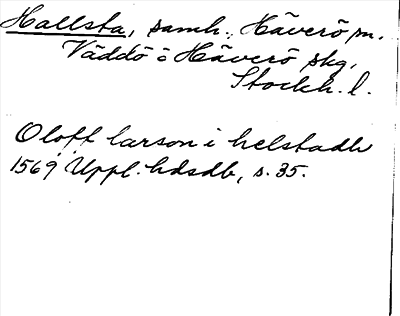 Hallsta, samh., Häverö sn.
Väddö o Häverö skg.
Stockh. l.
Oloff larson i helstadh
1569 Uppl. hdsdb, s. 35.